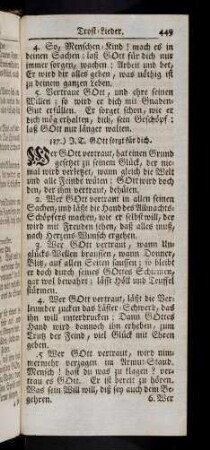 Trost-Lieder. 449
4. So, Menschen-Kind! mach es in
deinen Sachen: laß GOtt für dich nur
immer sorgen, wachen: Arbeit und bet,
Er wird dir alles geben, was nöthig ist
zu deinem gantzen Leben.
5. Vertraue GOtt, und ehre seinen
Willen; so wird er dich mit Gnaden-
Gut erfüllen. Er sorget schon, wie er
dich mög erhalten, dich, sein Geschöpf:
laß GOtt nur länger walten.
127.) J. T. GOtt sorgt für dich.
Wer GOtt vertraut, hat einen Grund
gesetzet zu seinem Glück, der nie-
mal wird verletzet, wann gleich die Welt
und alle Feinde wüten: GOtt wird doch
den, der ihm vertraut, behüten.
2. Wer GOtt vertraut in allen seinen
Sachen, und läßt die Hand des Allmachts-
Schöpfers machen, wie er es schickt, der
wird mit Freuden sehen, daß alles muß,
nach Hertzens-Wunsch ergehen.
3. Wer GOtt vertraut, wann Un-
glücks-Wellen braussen, wann Donner,
Blitz, auf allen Seiten saussen; so bleibt
er doch durch seines GOttes Schirmen,
gar wol bewahrt; läßt Höll und Teuffel
stürmen.
4. Wer GOtt vertraut, läßt die Ver-
läumder zucken das Läster-Schwerd, das
ihn will unterdrucken: Dann GOttes
Hand wird dennoch ihn erheben, zum
Trutz der Feind, viel Glück mit Ehren
geben.
5 Wer GOtt vertraut, wird nim-
mermehr verzagen im Armut-Stand.
Mensch! hast du was zu klagen? ver-
trau es GOtt. Er ist bereit zu hören.
Was sein Will will, diß sey auch dein Be-
gehren. 6. Wer